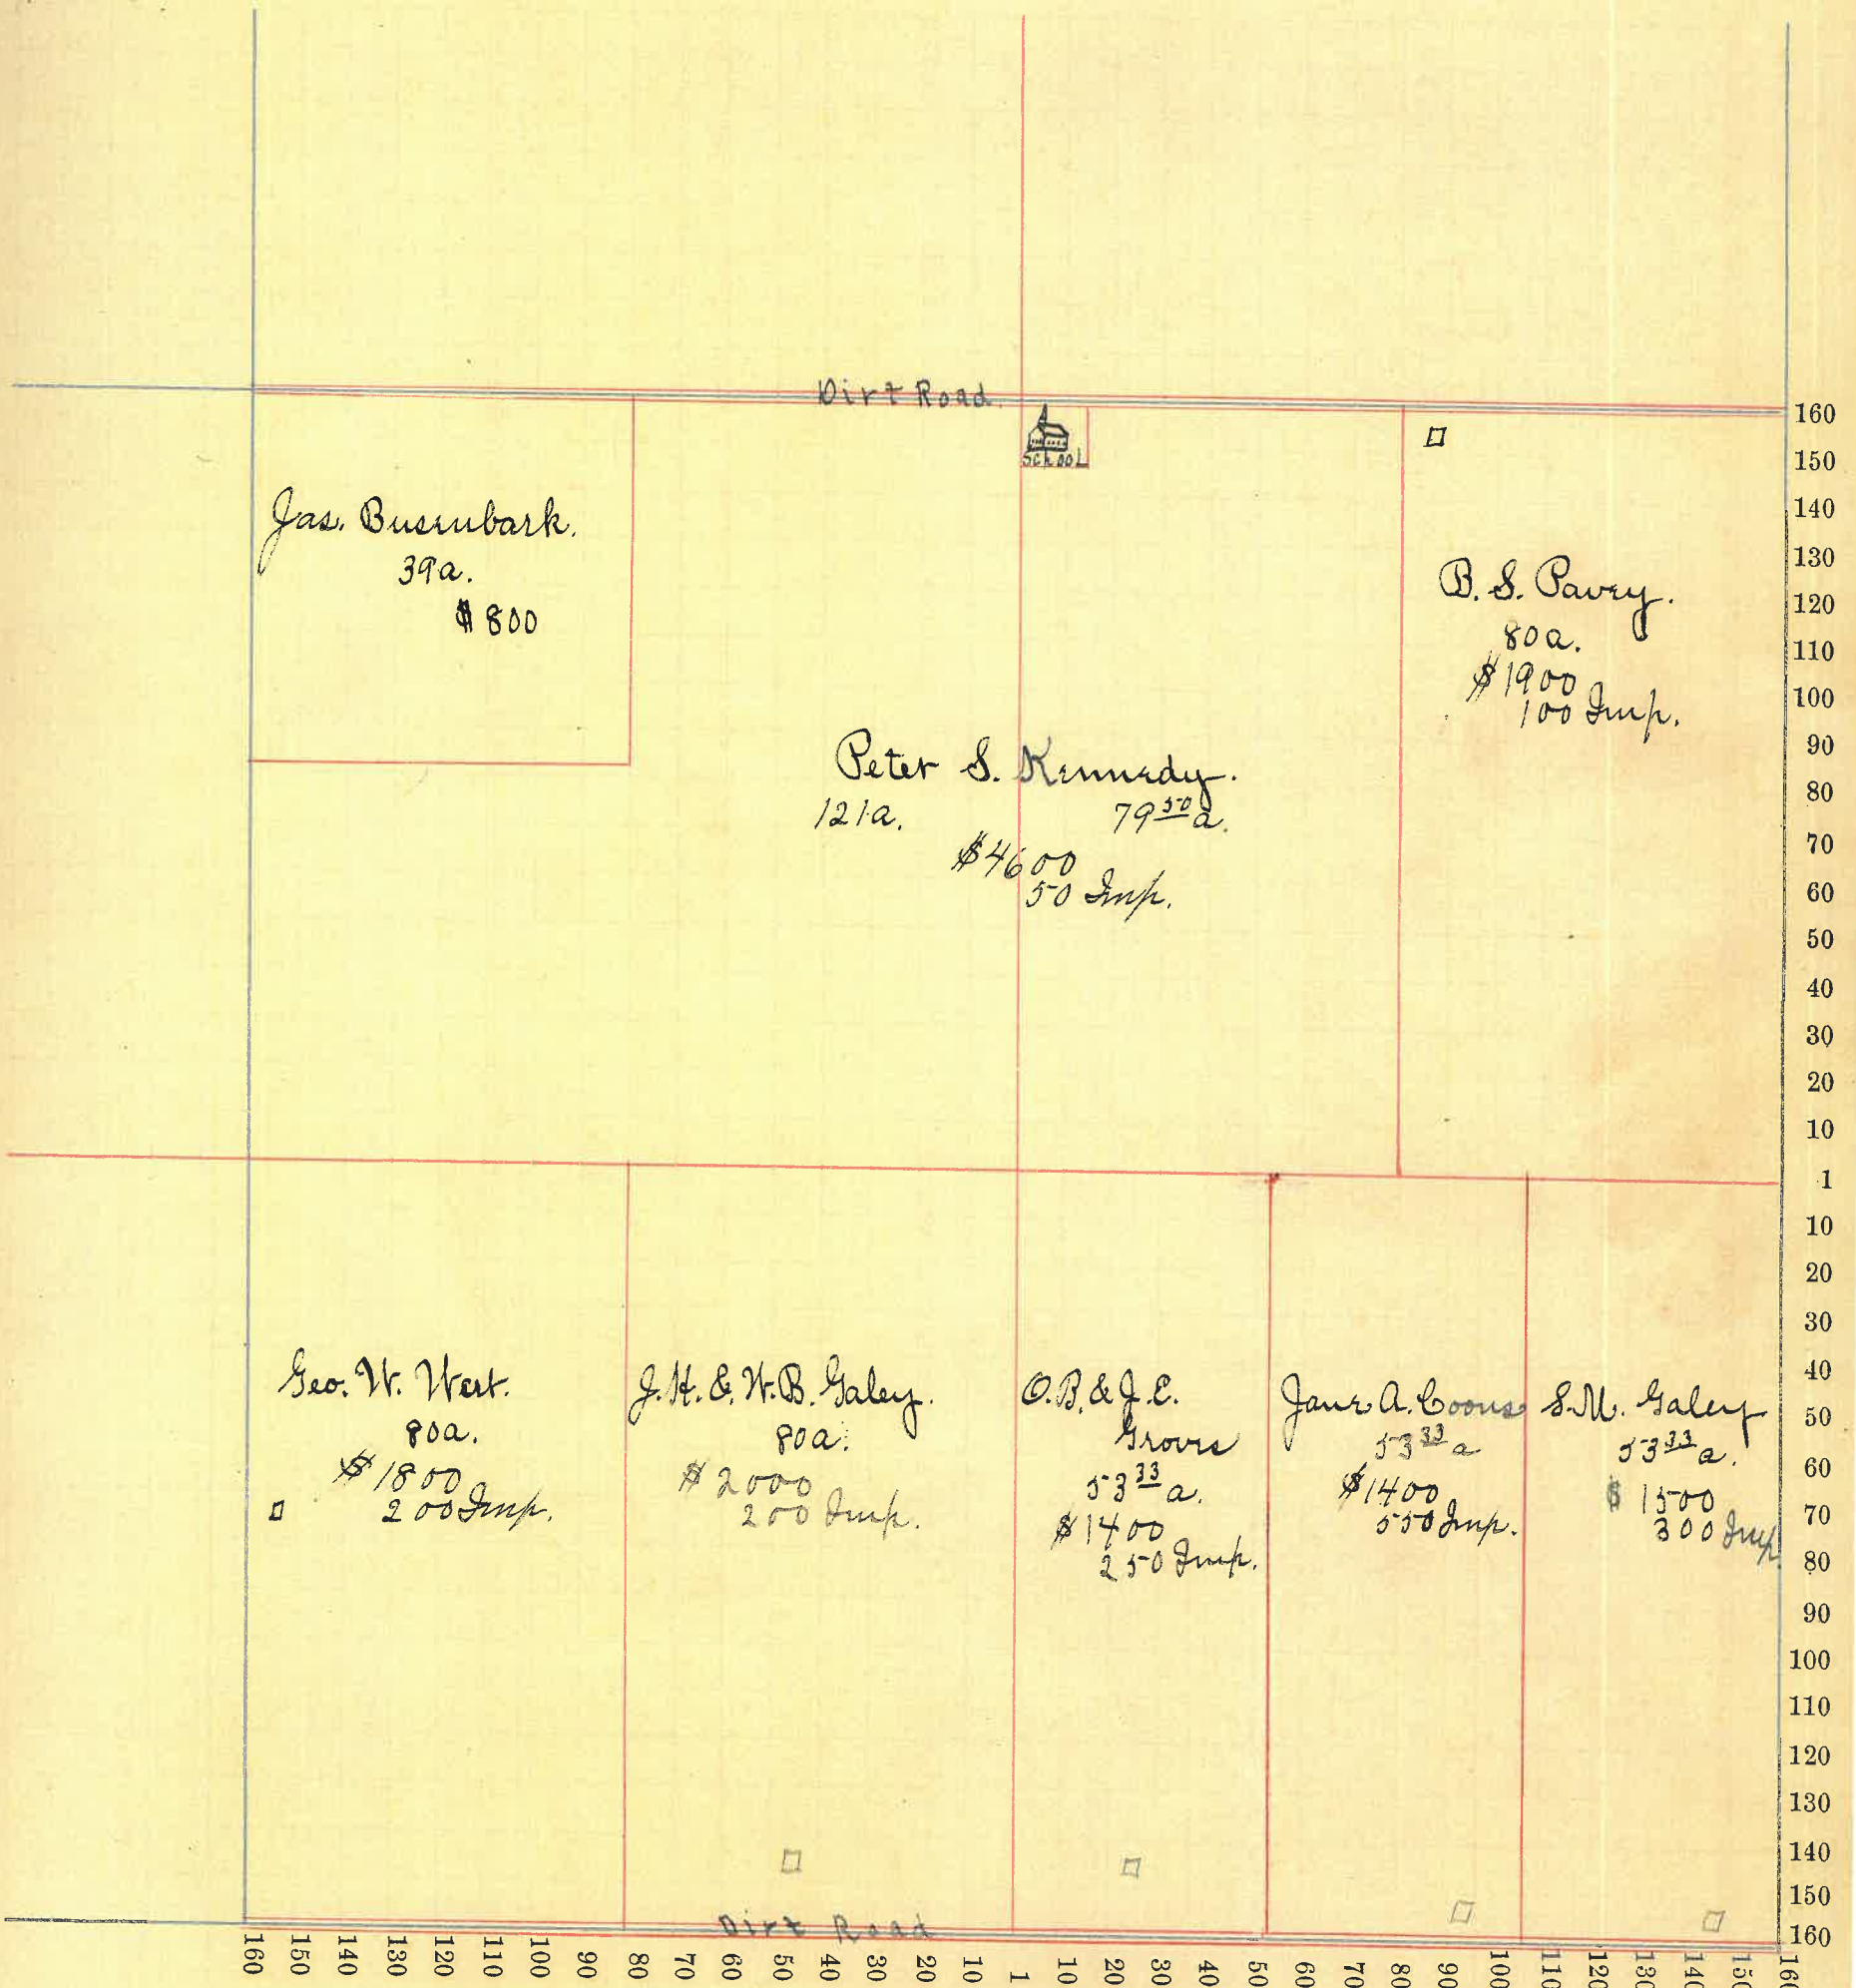 Dirt Road
SCHOOL
Jas. Busenbark.
39a.
$800
B. S. Pavey.
80a.
$1900
100 Imp.
Peter S. Kennedy.
121a. 79 50 a.
$4600
50 Imp.
Geo. W. West.
80a.
$1800
200 Imp.
J. H. & W. B. Galey.
80a.
$2000
200 Imp.
O. B. & J. E.
Groves
53 33 a.
$1400
250 Imp.
Jane A. Coons
53 33 a
$1400
550 Imp.
S. M. Galey
53 33 a.
$1500
300 Imp
Dirt Road
160
150
140
130
120
110
100
90
80
70
60
50
40
30
20
10
1
10
20
30
40
50
60
70
80
90
100
110
120
130
140
150
160
160 150 140 130 120 110 100 90 80 70 60 50 40 30 20 10 1 10 20 30 40 50 60 70 80 90 100 110 120 130 140 150 160